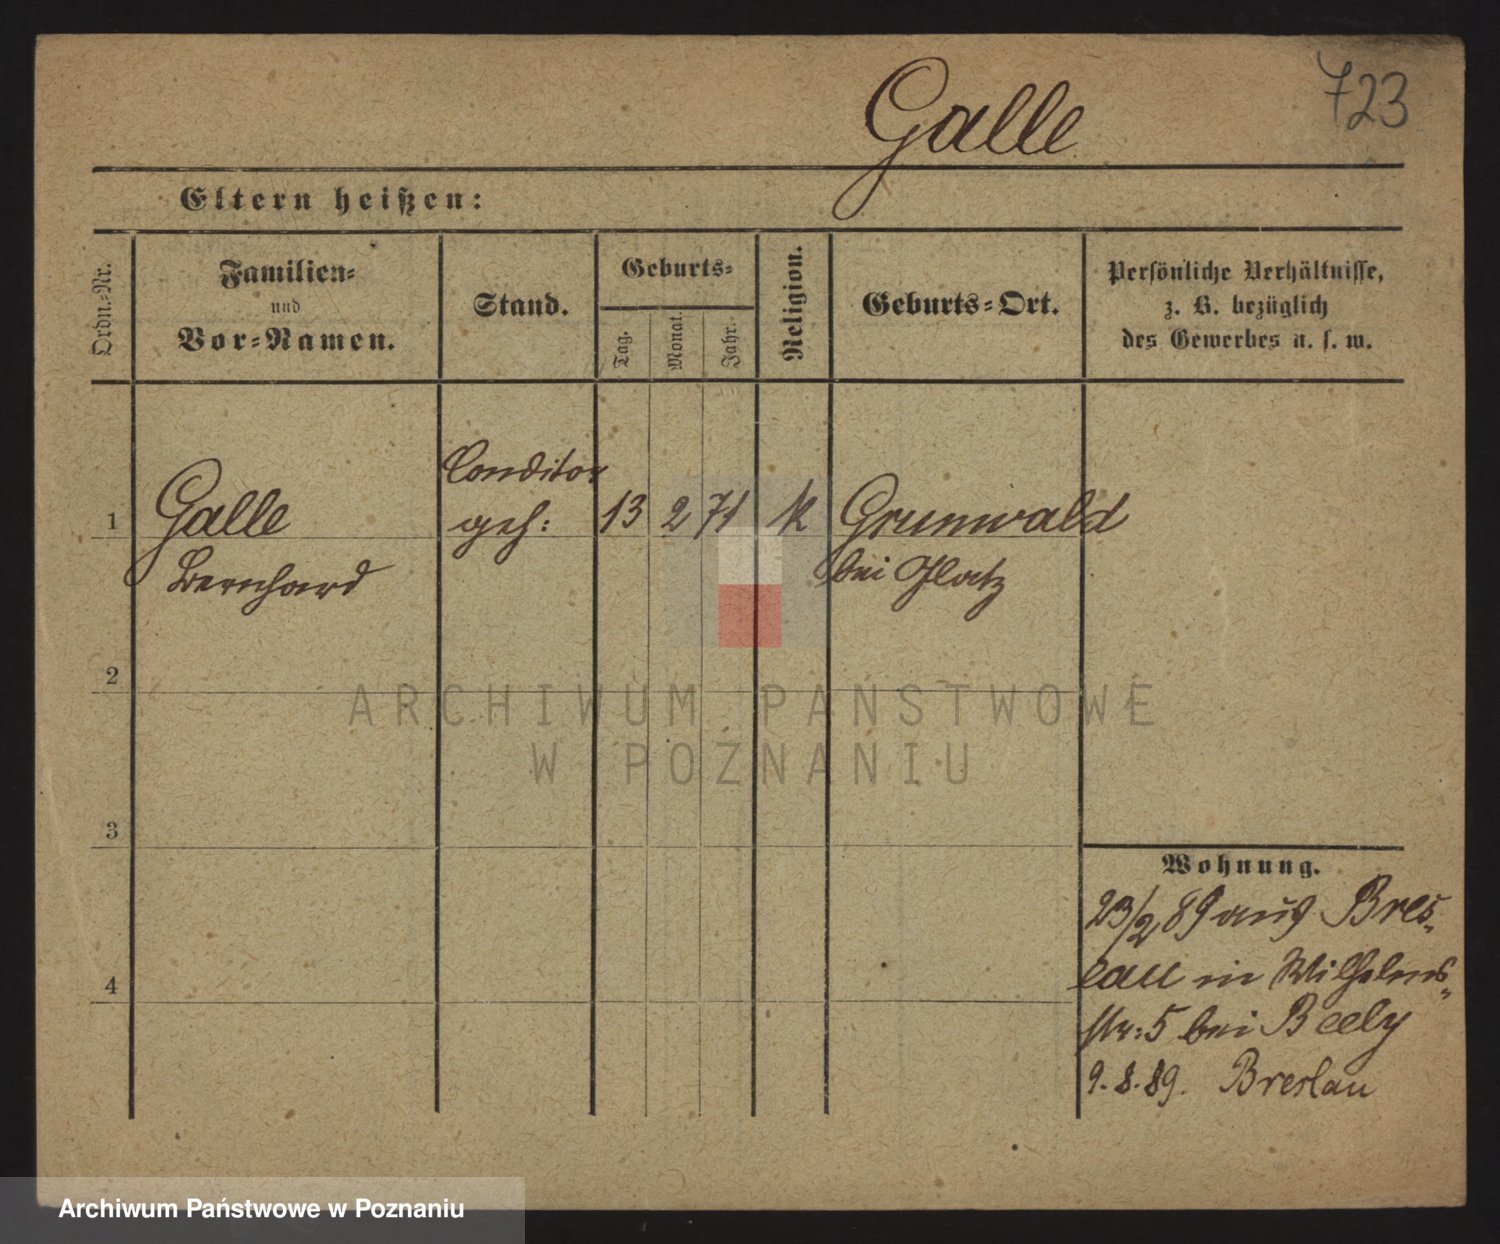 723
Galle
Eltern heißen:
Ordn.=Nr.
Familien=
und
Vor=Namen.
Stand.
Geburts=
Tag.
Monat.
Jahr.
Religion.
Geburts=Ort.
Persönliche Verhältnisse,
z. B. bezüglich
des Gewerbes u. s. w.
1
Galle
Bernhard
Conditor
geh:
13
2
71
k
Grunwald
bei Glatz
2
3
4
Wohnung.
23/2 89 aus Bres„
lau in Wilhelms„
str: 5 bei Beely
9. 8. 89. Breslau
ARCHIWUM PAŃSTWOWE
W POZNANIU
Archiwum Państwowe w Poznaniu